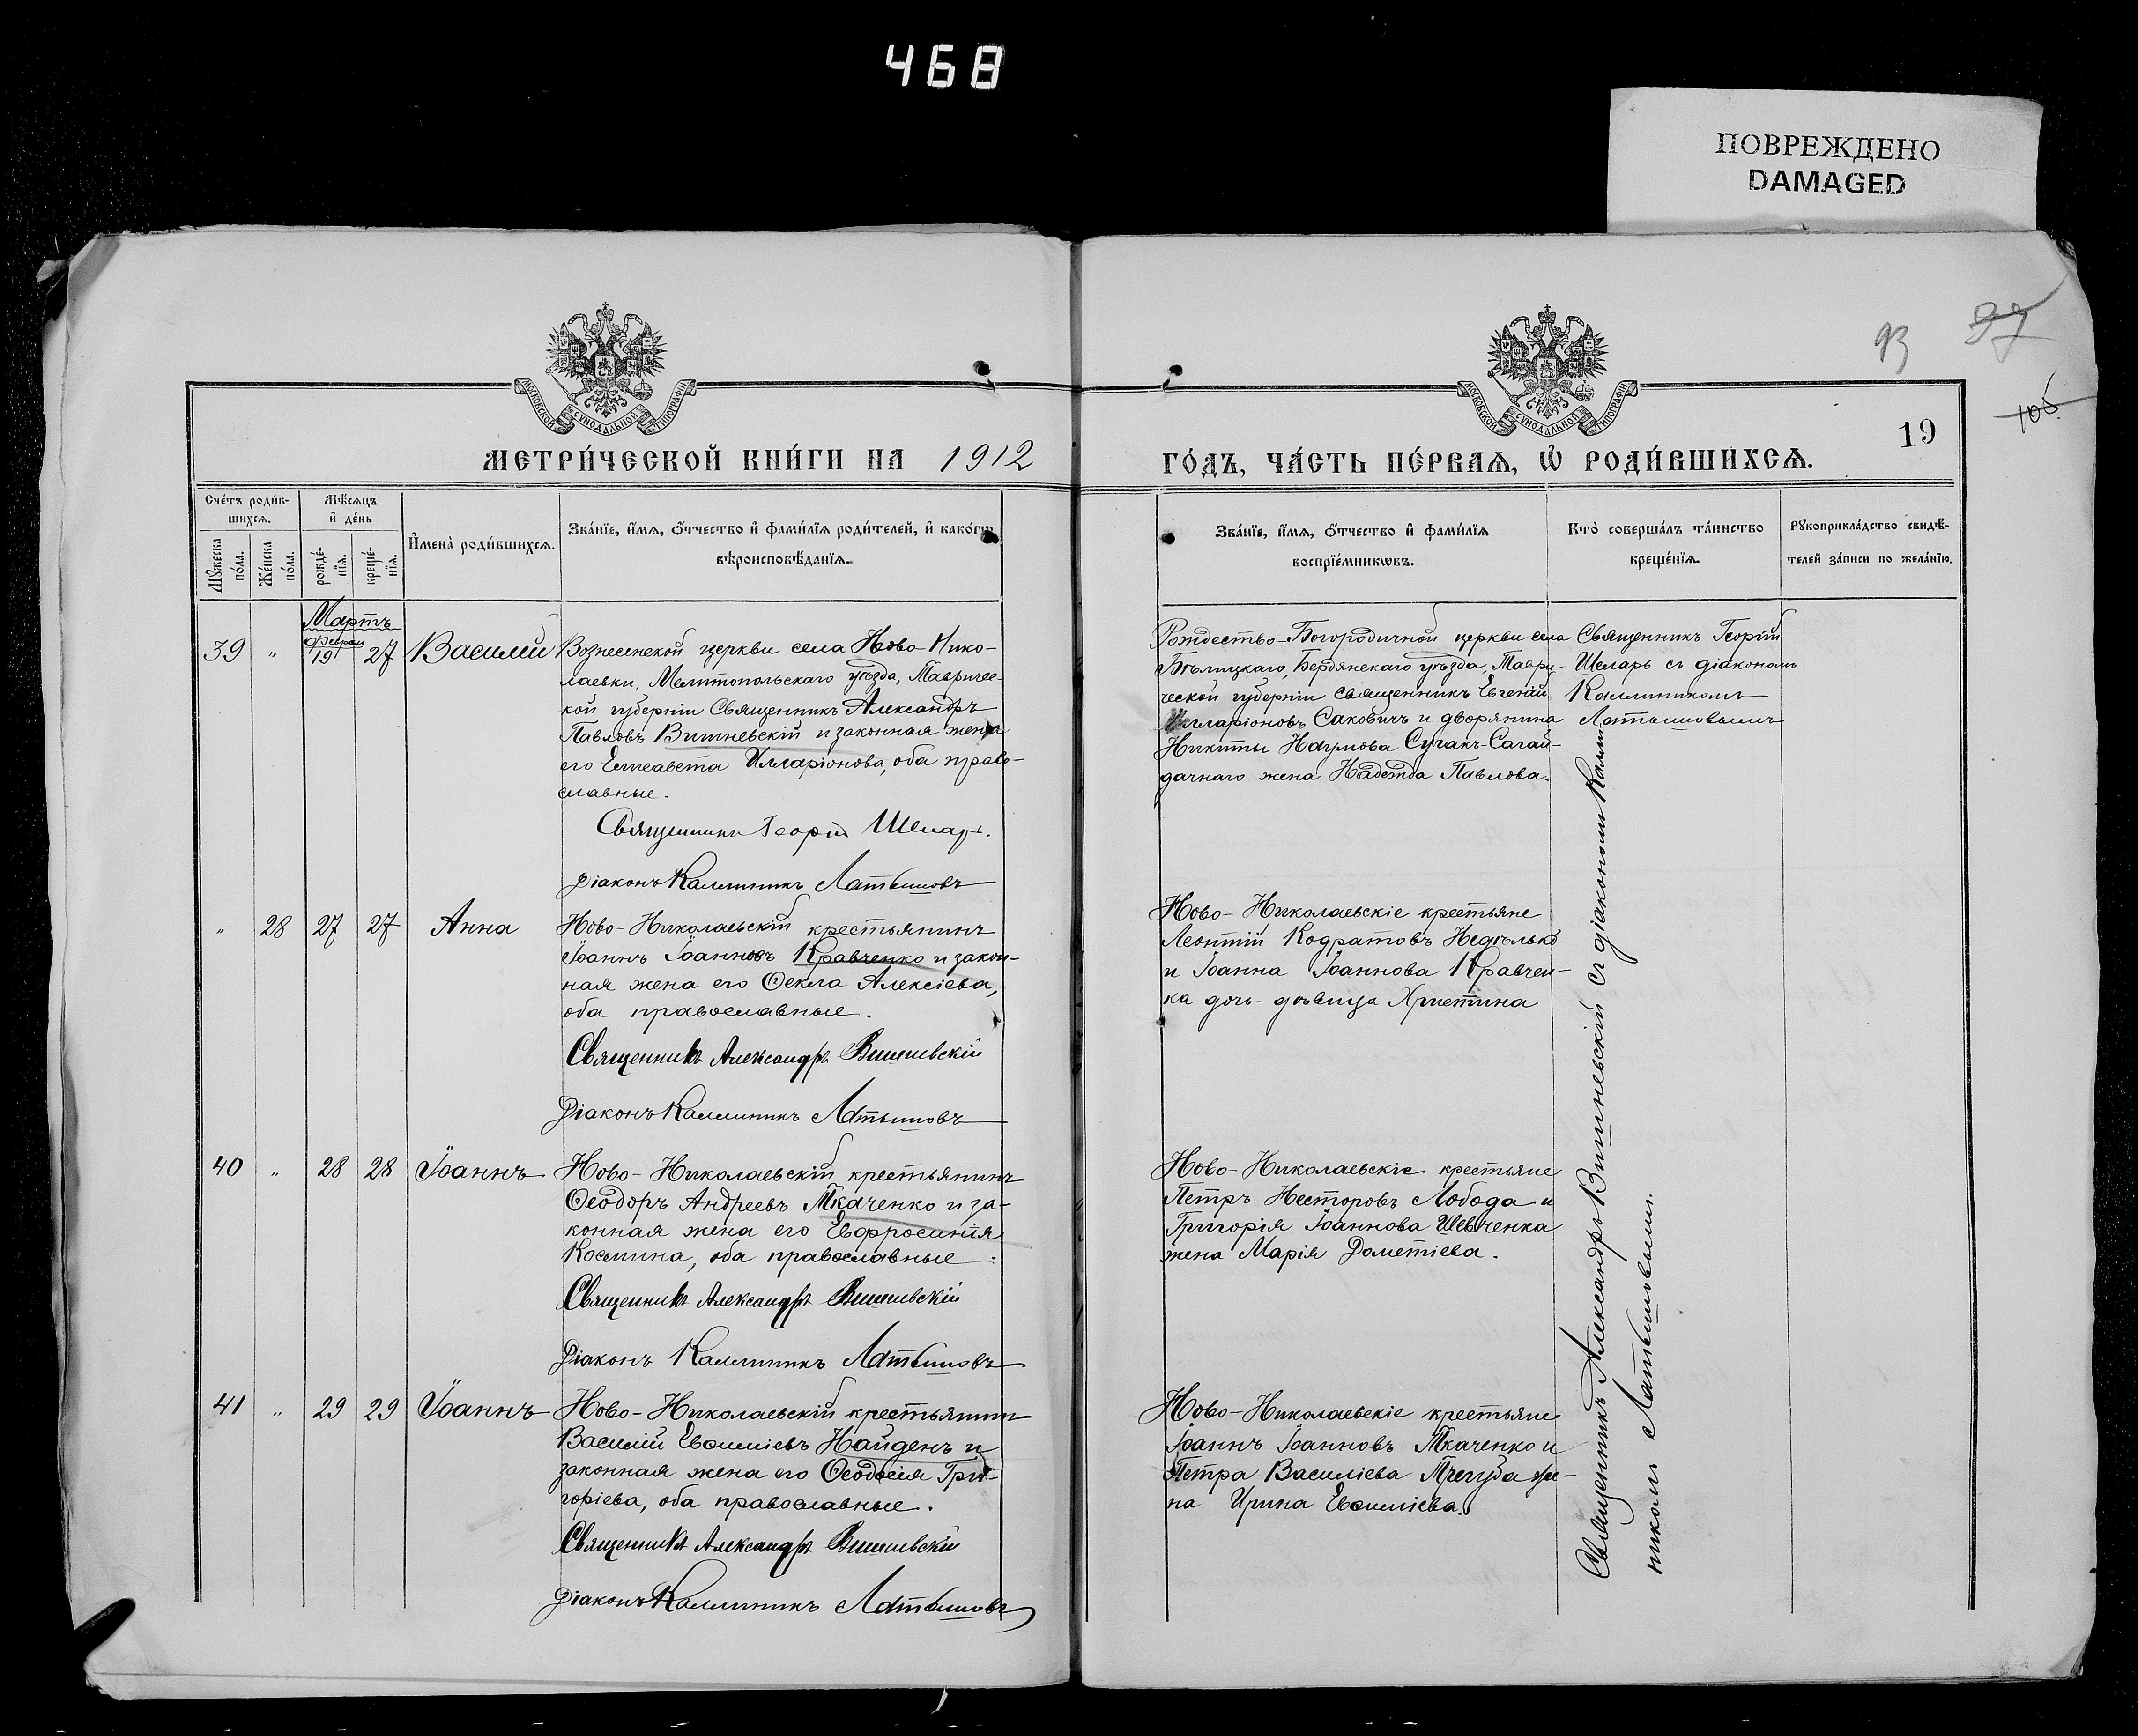 468
ПОВРЕЖДЕНО
DAMAGED
93
97
105
19
МОСКОВСКОЙ СУНОДАЛЬНОЙ ТИПОГРАФІИ
МОСКОВСКОЙ СУНОДАЛЬНОЙ ТИПОГРАФІИ
МЕТРИ́ЧЕСКОЙ КНИ́ГИ НА 1912
ГО́ДЪ, ЧА́СТЬ ПЕ́РВАѦ, Ѡ҆ РОДИ́ВШИХСѦ.
Сче́тъ роди́в-
шихсѧ.
Мꙋ́жеска по́ла.
Же́нска по́ла.
Мѣ́сѧцъ
и҆ де́нь
рожде́-
нїѧ.
креще́-
нїѧ.
И҆мена̀ роди́вшихсѧ.
Зва́нїе, и҆́мѧ, ѻ҆́тчество и҆ фами́лїѧ роди́телей, и҆ како́гѡ
вѣроисповѣ́данїѧ.
Зва́нїе, и҆́мѧ, ѻ҆́тчество и҆ фами́лїѧ
воспрїе́мникѡвъ.
Кто̀ соверша́лъ та́инство
креще́нїѧ.
Рꙋкоприкла́дство свидѣ́-
телей за́писи по жела́нїю.
Мартъ
39 " Феврал 19 27 Василій
Вознесенской церкви села Ново-Нико-
лаевки, Мелитопольскаго уѣзда, Тавричес-
кой губерніи Священникъ Александръ
Павловъ Вишневскій и законная жена
его Елисавета Илларіонова, оба право-
славные.
Священникъ Георгій Шеларь.
Діаконъ Каллиникъ Латышовъ
Рождество-Богородичной церкви села
Бѣлицкаго, Бердянскаго уѣзда, Таври-
ческой губерніи священникъ Евгеній
Илларіоновъ Саковичъ и дворянина
Никиты Наумова Сугакъ-Сагай-
дачнаго жена Надежда Павлова.
Священникъ Георгій
Шеларь съ діакономъ
Каллиникомъ
Латышовымъ
" 28 27 27 Анна
Ново-Николаевскій крестьянинъ
Іоаннъ Іоанновъ Кравченко и закон-
ная жена его Ѳекла Алексіева,
оба православные.
Священникъ Александръ Вишневскій
Діаконъ Каллиникъ Латышовъ
Ново-Николаевскіе крестьяне
Леонтій Кодратовъ Недѣлько
и Іоанна Іоаннова Кравчен-
ка дочь-дѣвица Христина
40 " 28 28 Іоаннъ
Ново-Николаевскій крестьянинъ
Ѳеодоръ Андреевъ Ткаченко и за-
конная жена его Евфросинія
Косьмина, оба православные.
Священникъ Александръ Вишневскій
Діаконъ Каллиникъ Латышовъ
Ново-Николаевскіе крестьяне
Петръ Несторовъ Лобода и
Григорія Іоаннова Шевченка
жена Марія Дометіева.
41 " 29 29 Іоаннъ
Ново-Николаевскій крестьянинъ
Василій Евѳиміевъ Найденъ и
законная жена его Ѳеодосія Гри-
горіева, оба православные.
Священникъ Александръ Вишневскій
Діаконъ Каллиникъ Латышовъ
Ново-Николаевскіе крестьяне
Іоаннъ Іоанновъ Ткаченко и
Петра Василіева же-
на Ирина Евѳиміева.
Священникъ Александръ Вишневскій съ діакономъ Калли-
никомъ Латышовымъ.